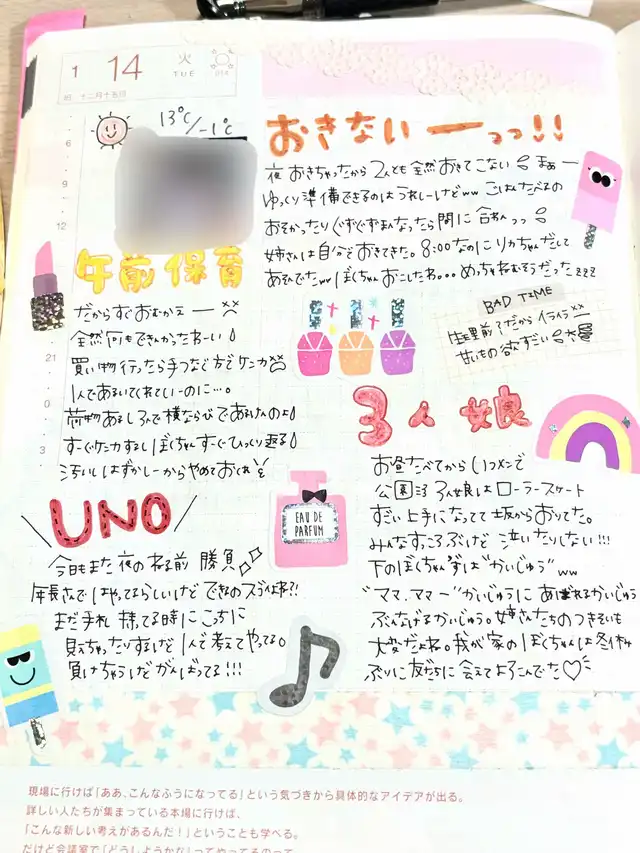 1 14 火
TUE
旧 十二月十五日
6
9
12
21
0
3
13℃/-1℃
おきないーっっ!!
夜 おきちゃったから2人とも全然おきてこない まぁー
ゆっくり準備できるのはうれしーけどww ごはんたべるの
おそかったりぐずぐずまんなったら間に合わんっっ
姉さんは自分でおきてきた。8:00なのにリカちゃんだして
あそびでたww ぼくちゃんおこしたわ。。。めっちゃねむそうだったzzz
午前保育
だからすぐおむかえー
全然何もできんかったねーい
買い物行ったら手つなぐ方でケンカ
1人であるいてくれていーのに…。
荷物あるし3人で横ならびであるけんのよ
すーぐケンカするしぼくちゃんすーぐひっくり返る
汚いしはずかしーからやめておくれ
BAD TIME
生理前?だからイライラ
甘いもの欲すごい
3人娘
お昼たべてからいつメンで
公園 3人娘はローラースケート
すごい上手になってて坂からおりてた。
みんなすっころぶけど泣いたりしない!!!
下のぼくちゃんずは"かいじゅう"ww
"ママ、ママー"かいじゅうにあばれるかいじゅう
ぶんなげるかいじゅう。姉さんたちのつきそいも
大変だよね。我が家のぼくちゃんは冬休み
ぶりに友だちに会えてよろこんでた♡
UNO
今日もまた夜のねる前 勝負
年長さんではやってるらしいけどできるのスゴイよね?!
まだ手札 捨てる時にこっちに
見えちゃったりするけど1人で考えてやってる。
負けちゃうけどがんばってる!!!
EAU DE
PARFUM
現場に行けば「ああ、こんなふうになってる」という気づきから具体的なアイデアが出る。
詳しい人たちが集まっている本場に行けば、
「こんな新しい考えがあるんだ!」ということも学べる。
だけど会議室で「どうしようかな」ってやってるのって